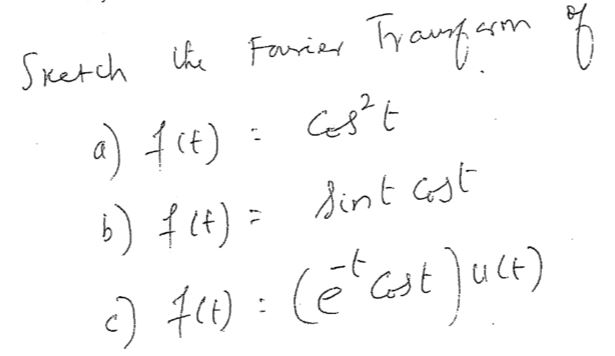 Sketch the Fourier Transform of
a) f(t) = Cos²t
b) f(t) = Sint Cost
c) f(t) = (e⁻ᵗ Cost) u(t)